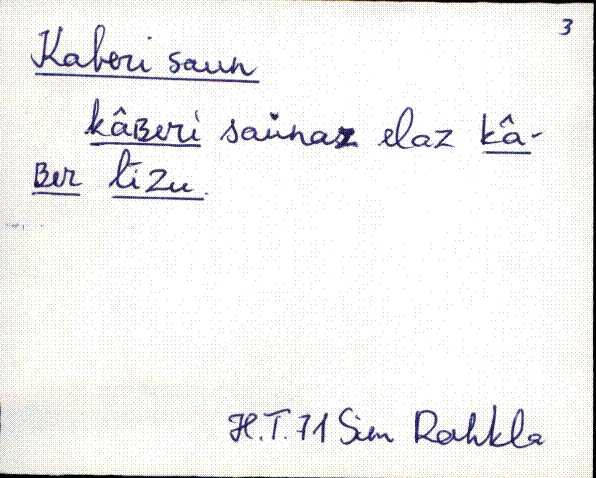 3
Kaberi saun
kâʙeri saùnaz elaz kâ-
ʙer līzu.
H.T. 71 Sim Rahkla